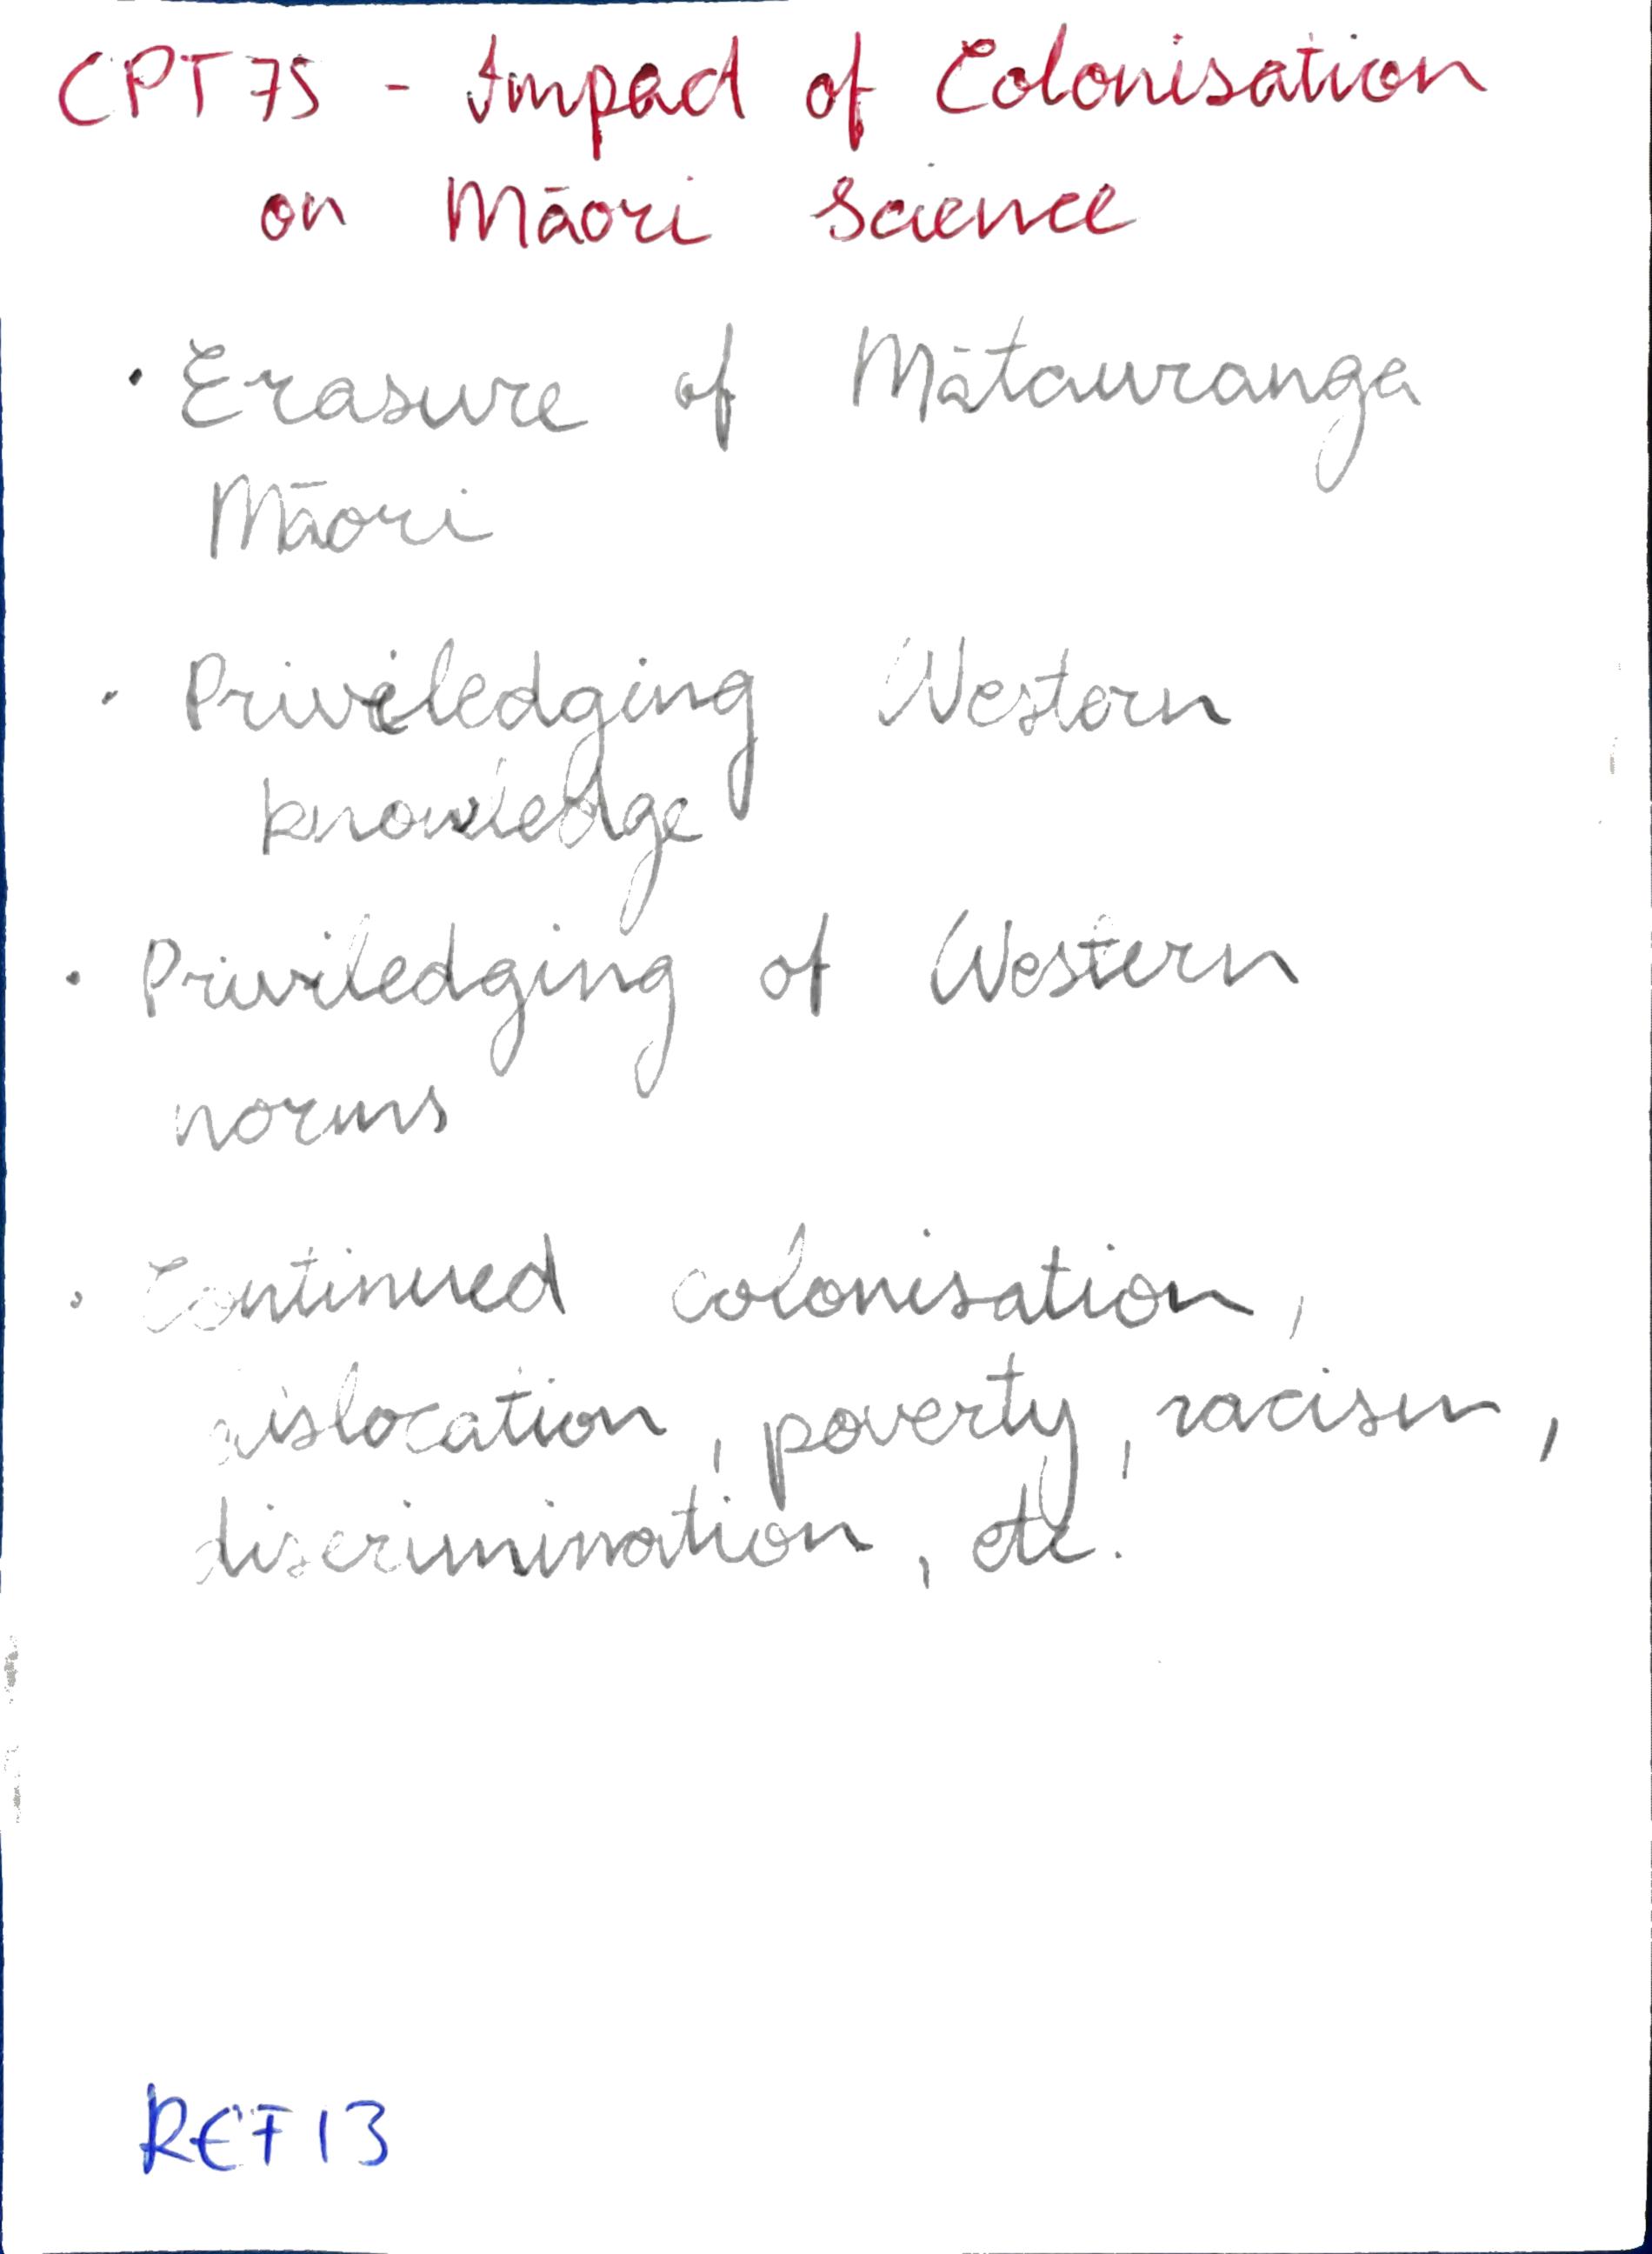 CPT 75 - Impact of Colonisation
on Māori Science
· Erasure of Mātauranga
Māori
· Priviledging Western
knowledge
· Priviledging of Western
norms
· Continued colonisation,
dislocation, poverty, racism,
discrimination, etc.
REF 13